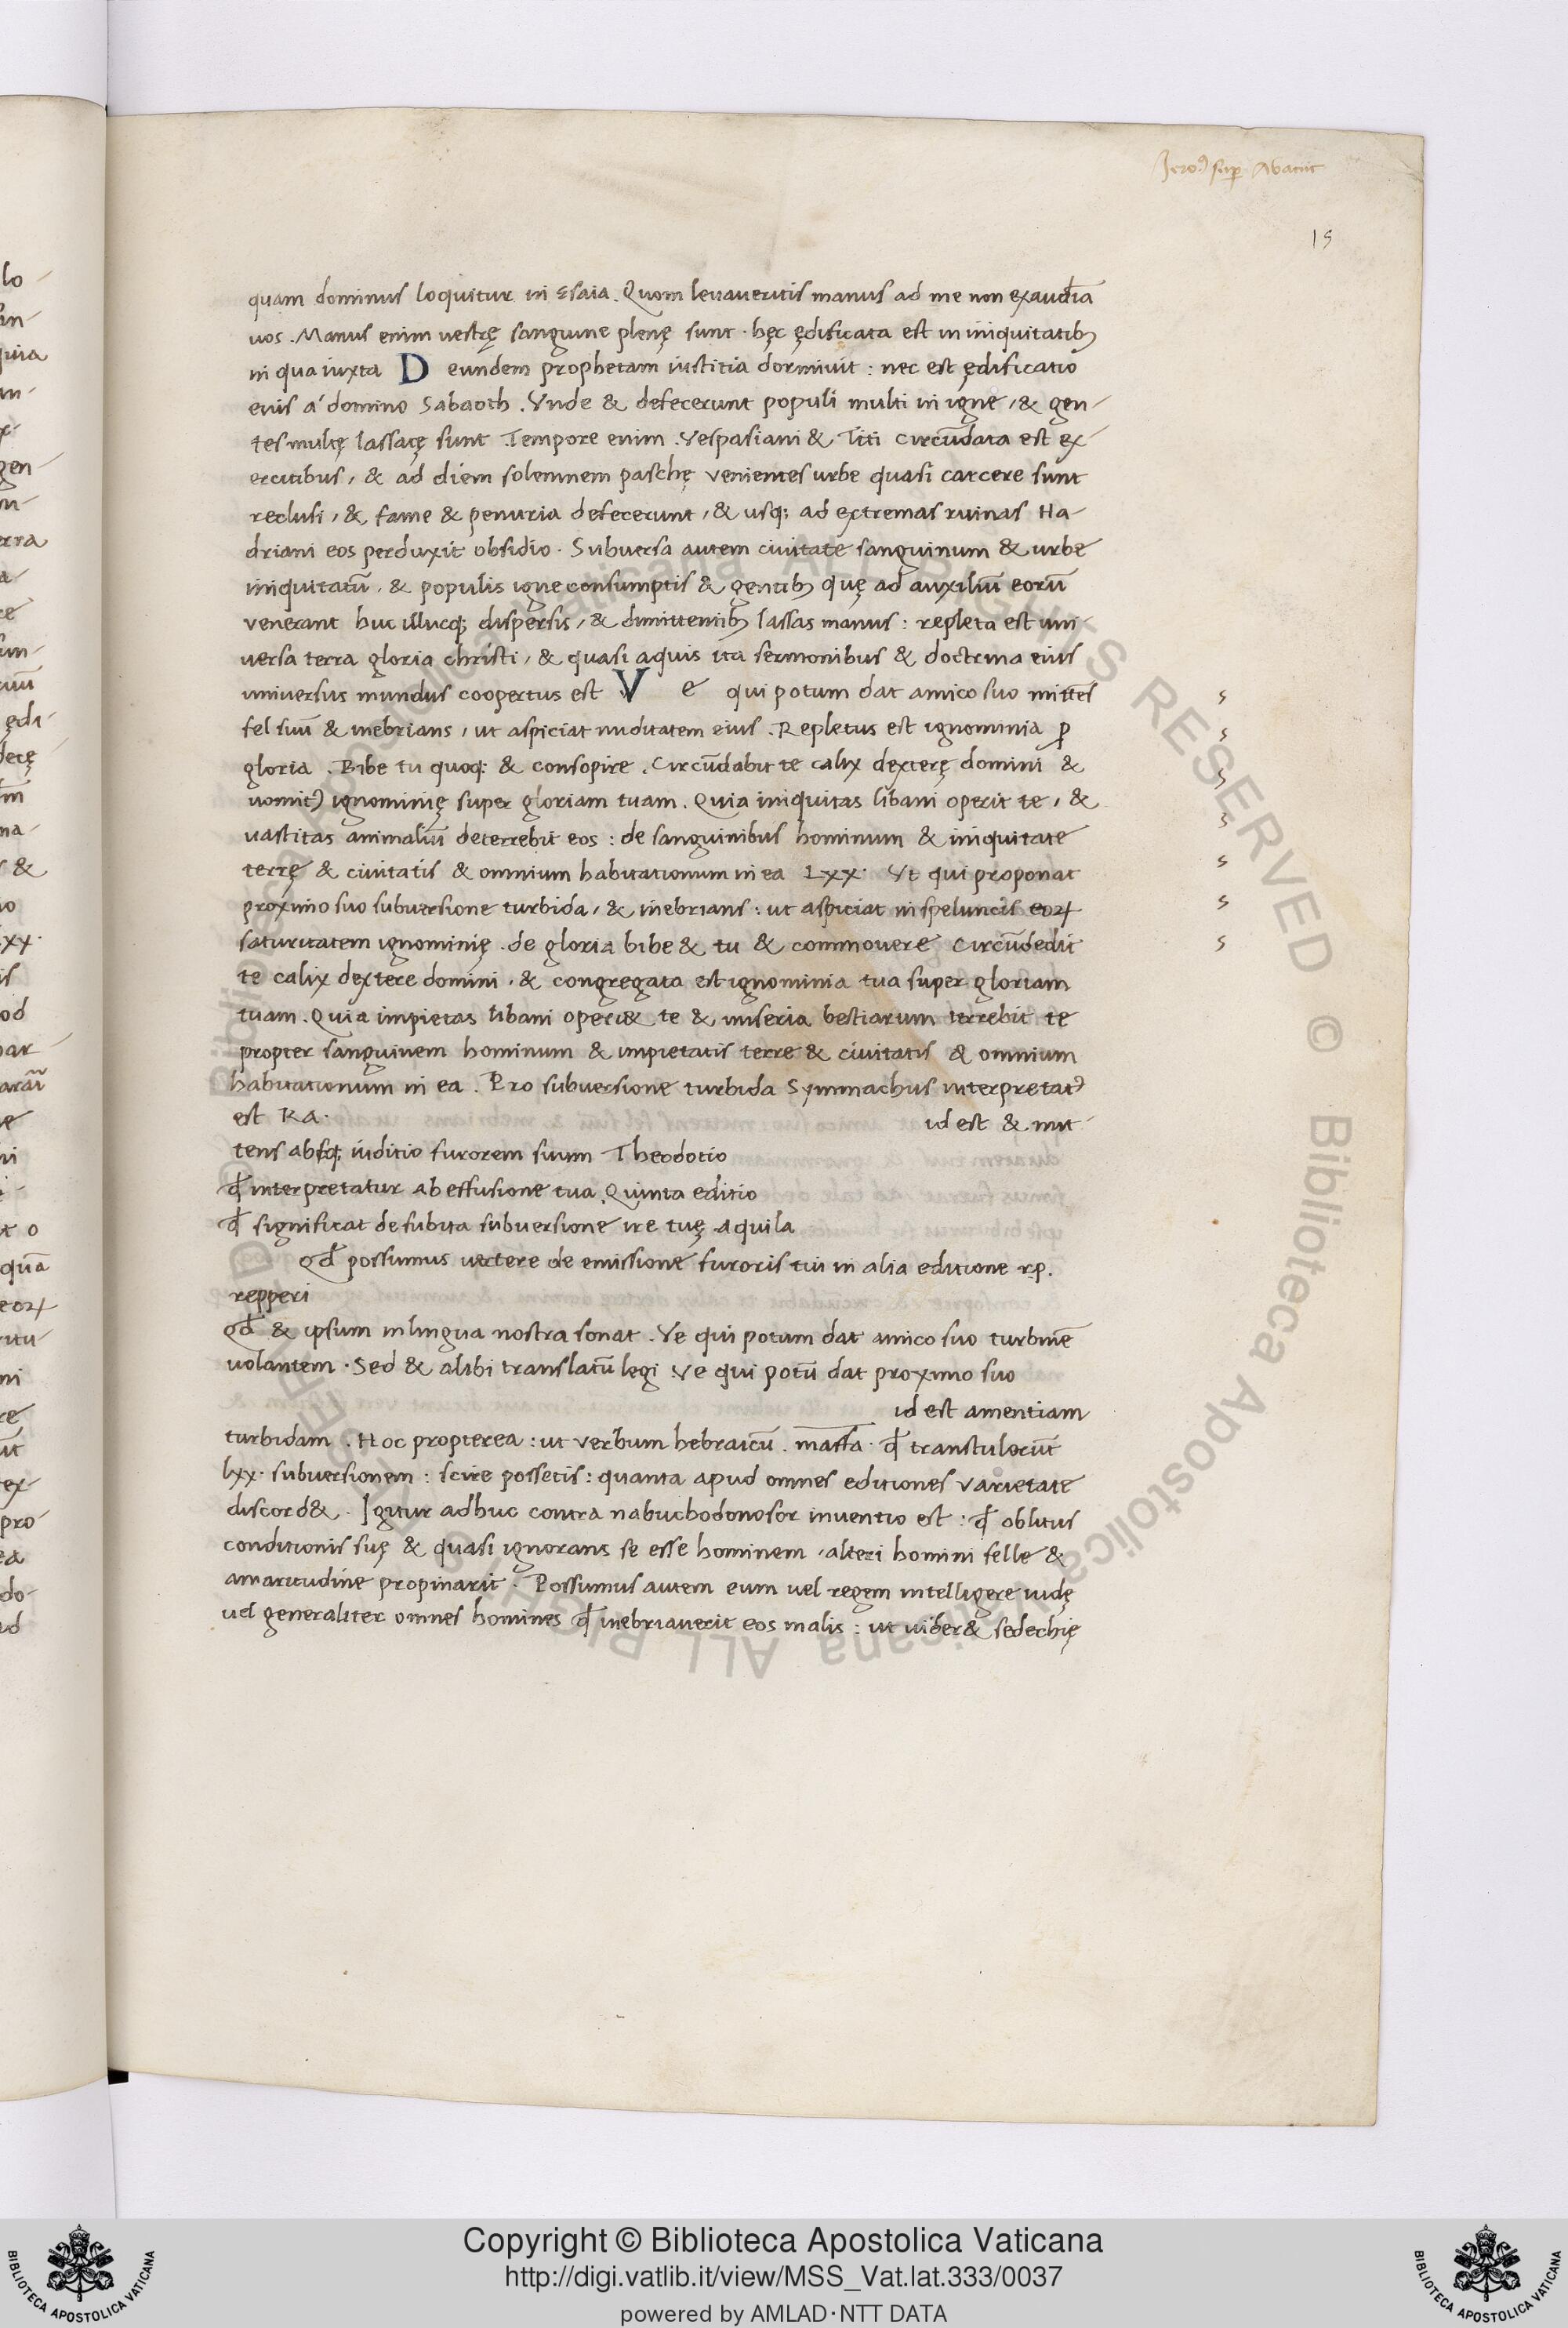 Jero. sup Abacuc
15
quam dominus loquitur in esaia. Quom levaveritis manus ad me non exaudiā
vos. Manus enim vestrę sanguine plenę sunt. hęc ędificata est in iniquitatibꝫ
in qua iuxta D eundem prophetam iustitia dormivit: nec est ędificatio
eius á domino Sabaoth. Vnde & defecerunt populi multi in igne, & gen-
tes multę lassatę sunt. Tempore enim. Vespasiani & Titi circūdata est ex-
ercitibus, & ad diem solemnem paschę venientes urbe quasi carcere sunt
reclusi, & fame & penuria defecerunt, & usqꝫ ad extremas ruinas Ha-
driani eos perduxit obsidio. Subversa autem civitate sanguinum & urbe
iniquitatū, & populis igne consumptis & gentibꝫ quę ad auxiliū eorū
venerant huc illucqꝫ dispersis, & dimittentibꝫ lassas manus: repleta est uni-
versa terra gloria christi, & quasi aquis ita sermonibus & doctrina eius
universus mundus coopertus est V e qui potum dat amico suo mittēs
fel suū & inebrians, ut aspiciat nuditatem eius. Repletus est ignominia ꝑ
gloria. Bibe tu quoqꝫ & consopire. Circūdabit te calix dexterę domini &
vomitꝰ ignominię super gloriam tuam. Quia iniquitas libani operit te, &
vastitas animaliū deterrebit eos: de sanguinibus hominum & iniquitate
terrę & civitatis & omnium habitationum in ea LXX. Vt qui proponat
proximo suo subversione turbida, & inebrians: ut aspiciat in speluncis eoꝝ
saturitatem ignominię. de gloria bibe & tu & commovere Circūdedit
te calix dextere domini, & congregata est ignominia tua super gloriam
tuam. Quia impietas libani operi& te & miseria bestiarum terrebit te
propter sanguinem hominum & impietatis terre & civitatis & omnium
habitationum in ea. Pro subversione turbida Symmachus interpretatꝰ
est Ra. id est & mit-
tens absqꝫ iuditio furorem suum Theodotio
qđ interpretatur ab effusione tua. Quinta editio
qđ significat de subita subversione ire tuę aquila
qđ possumus vertere de emissione furoris tui in alia editione rp.
repperi
qđ & ipsum in lingua nostra sonat. Ve qui potum dat amico suo turbinē
volantem. Sed & alibi translatū legi Ve qui potū dat proximo suo
id est amentiam
turbidam. Hoc propterea: ut verbum hebraicū. massa. qđ transtulerūt
lxx. subversionem: scire possetis: quanta apud omnes editiones varietate
discord&. Igitur adhuc contra nabuchodonosor inventio est: qđ oblitus
conditionis suę & quasi ignorans se esse hominem, alteri homini felle &
amaritudine propinarit. Possumus autem eum vel regem intelligere iudę
vel generaliter omnes homines qđ inebriaverit eos malis: ut viber& sedechię
Copyright © Biblioteca Apostolica Vaticana
http://digi.vatlib.it/view/MSS_Vat.lat.333/0037
powered by AMLAD·NTT DATA